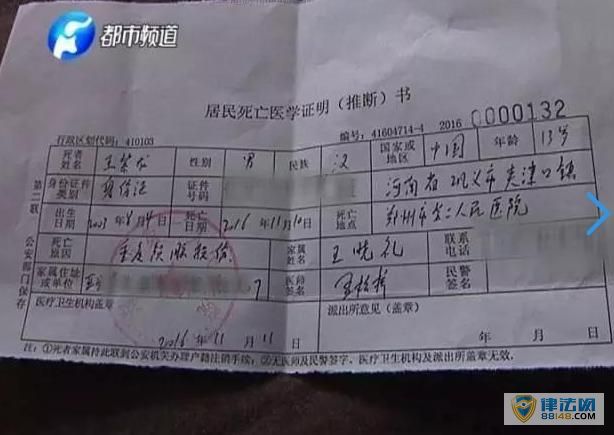 都市频道
居民死亡医学证明（推断）书
行政区划代码：410103 编号：41604714-4 2016 0000132
死者姓名 王 性别 男 民族 汉 国家或地区 中国 年龄 13岁
第二联
身份证件类别 身份证 证件号码 河南省巩义市夹津口镇
出生日期 2003年8月4日 死亡日期 2016年11月10日 死亡地点 郑州市第二人民医院
死亡原因 重度颅脑损伤 家属签名 王晓礼 联系电话
家属住址或单位 医师签名 民警签名
公安部门保存
医疗卫生机构盖章 派出所意见（盖章）
2016年11月11日 年 月 日
注：①死者家属持此联到公安机关办理户籍注销手续；②无医药及民警签字、医疗卫生机构及派出所盖章无效。
律法网
88148.COM